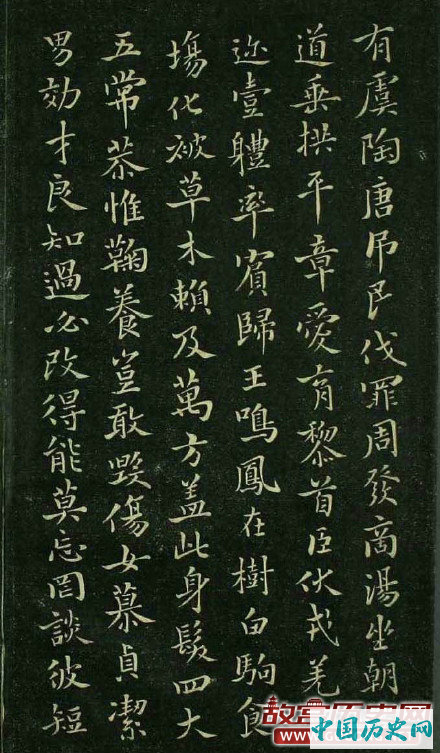 有虞陶唐吊民伐罪周發商湯坐朝
道垂拱平章愛育黎首臣伏戎羌
迩壹軆率賓歸王鳴鳳在樹白駒食
場化被草木賴及萬方盖此身髮四大
五常恭惟鞠養豈敢毀傷女慕貞潔
男効才良知過必改得能莫忘罔談彼短
故宫历史网
中国历史网